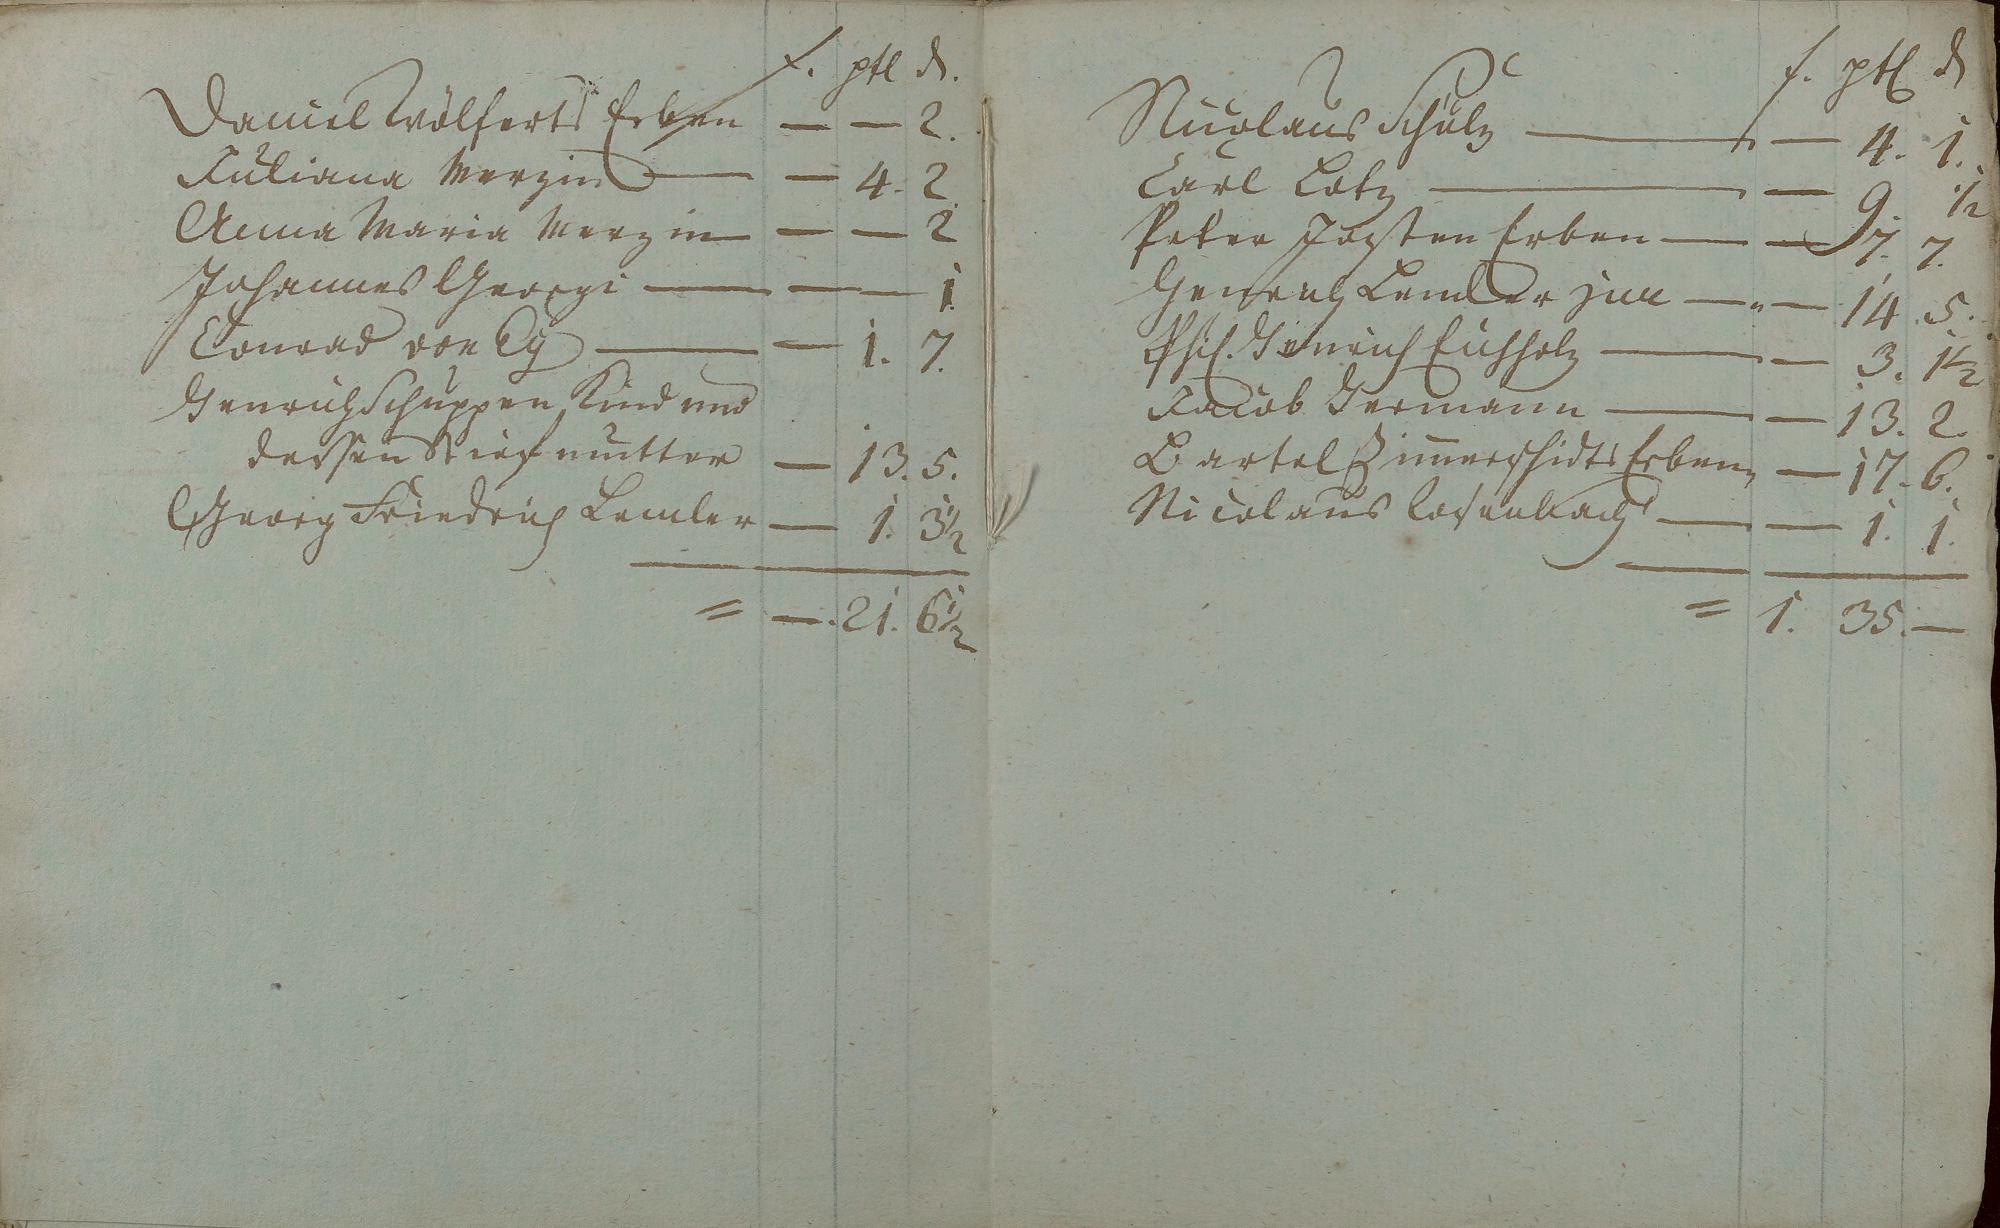 f. ptl d.
Daniel Wölferts Erben — — 2.
Juliana Merzin — — 4. 2.
Anna Maria Merzin — — — 2
Johannes Georgi — — — 1.
Conrad von Ey — — 1. 7.
Henrich Schuppen Kind und
dessen Stiefmutter — 13. 5.
Georg Friedrich Lemler — 1. 3½
= — . 21. 6½
f. ptl d
Nicolaus Schulz — — 4. 1.
Carl Lotz — — 9. ½
Peter Josten Erben — — 7. 7.
Henrich Lemler jun — — 14 5.
Phil. Henrich Eichholz — — 3. 1½
Jacob Germann — — 13. 2.
Bartel Zimerschidts Erben — 17. 6.
Nicolaus Rosenbach — — 1. 1.
= 1. 35. —